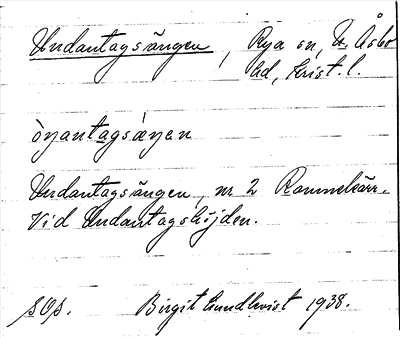 Undantagsängen, Rya sn, N. Åsbo
hd, Krist. l.
ònantagsǽŋen
Undantagsängen, nr 2 Ramnekärr.
Vid Undantagshöjden.
sOs. Birgit Lundkvist 1938.